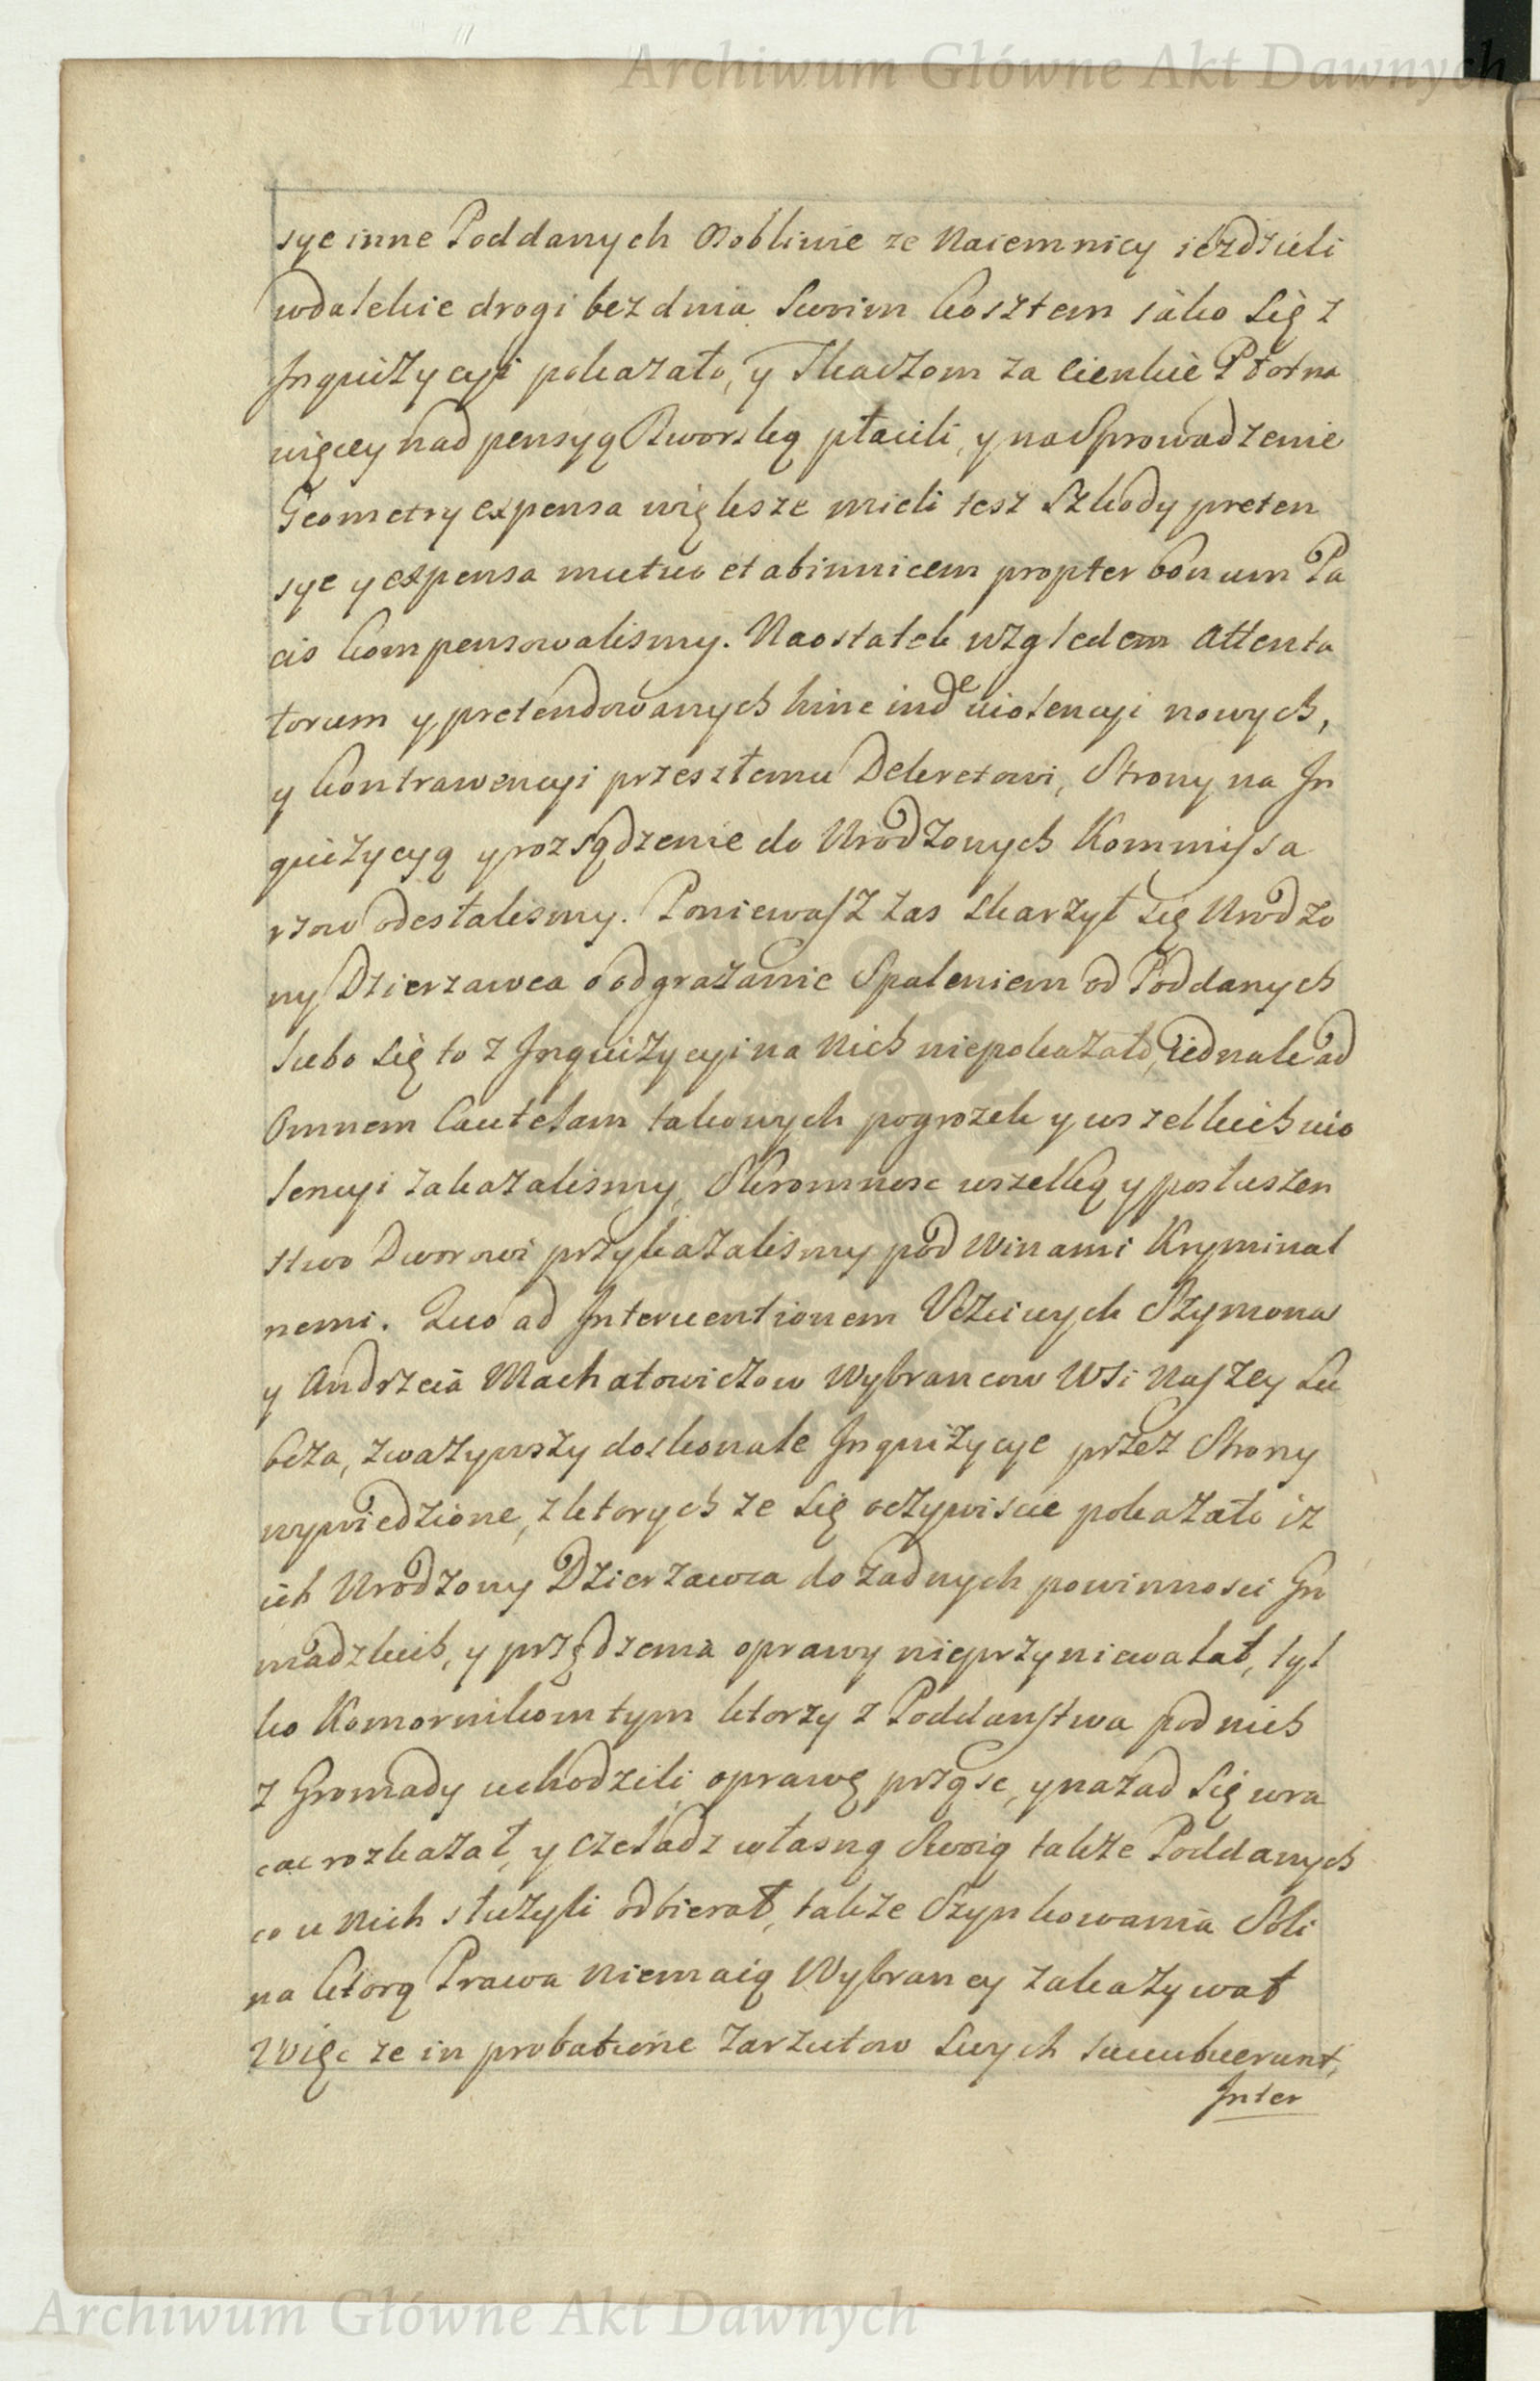 Archiwum Główne Akt Dawnych
sye inne Poddanych osobliwie ze Naiemnicy ieździeli
wdalekie drogi bez dnia swoim kosztem iako się z
Inquizycyi pokazało, y Tkaczom za cienkie Płotna
więcey nad pensyą Dworską płacili, y na Sprowadzenie
Geometry expensa większe mieli tesz Szkody preten
sye y expensa mutuo et abinuicem propter bonum Pa
cis kompensowalismy. Naostatek względem Attenta
torum y pretendowanych hinc inde violencyi nowych,
y kontrawencyi przeszłemu Dekretowi, Strony na In
quizycyą y rozsądzenie do Urodzonych Kommissa
rzow odesłalismy. Poniewasz zas skarzył się Urodzo
ny Dzierzawca o odgrażanie Spaleniem od Poddanych
lubo się to z Inquizycyi na Nich niepokazało, iednak ad
Omnem Cautelam takowych pogrozek y wszelkich vio
lencyi zakazalismy, Skromnosc wszelką y posłuszen
stwo Dworowi przykazalismy pod Winami Kryminal
nemi. Quo ad Interuentionem Uczciwych Szymona
y Andrzeia Machatowiczow Wybrancow Wsi Naszey Lu
bcza, zwazywszy doskonale Inquizycye przez Strony
wywiedzione, z ktorych ze się oczywiscie pokazało iz
ich Urodzony Dzierzawca do zadnych powinnosci Gro
madzkich, y przędzenia oprawy nieprzyniewalał, tyl
ko Komornikom tym ktorzy z Poddanstwa pod nich
z Gromady uchodzili oprawę prząsc, y nazad się wra
cac rozkazał, y czeladz własną Swoią takze Poddanych
co u Nich słuzyli odbierał, takze Szynkowania Soli
na ktorą Prawa niemaią Wybrancy zakazywał
Więc ze in probatione zarzutow swych succubuerunt,
Inter
Archiwum Główne Akt Dawnych